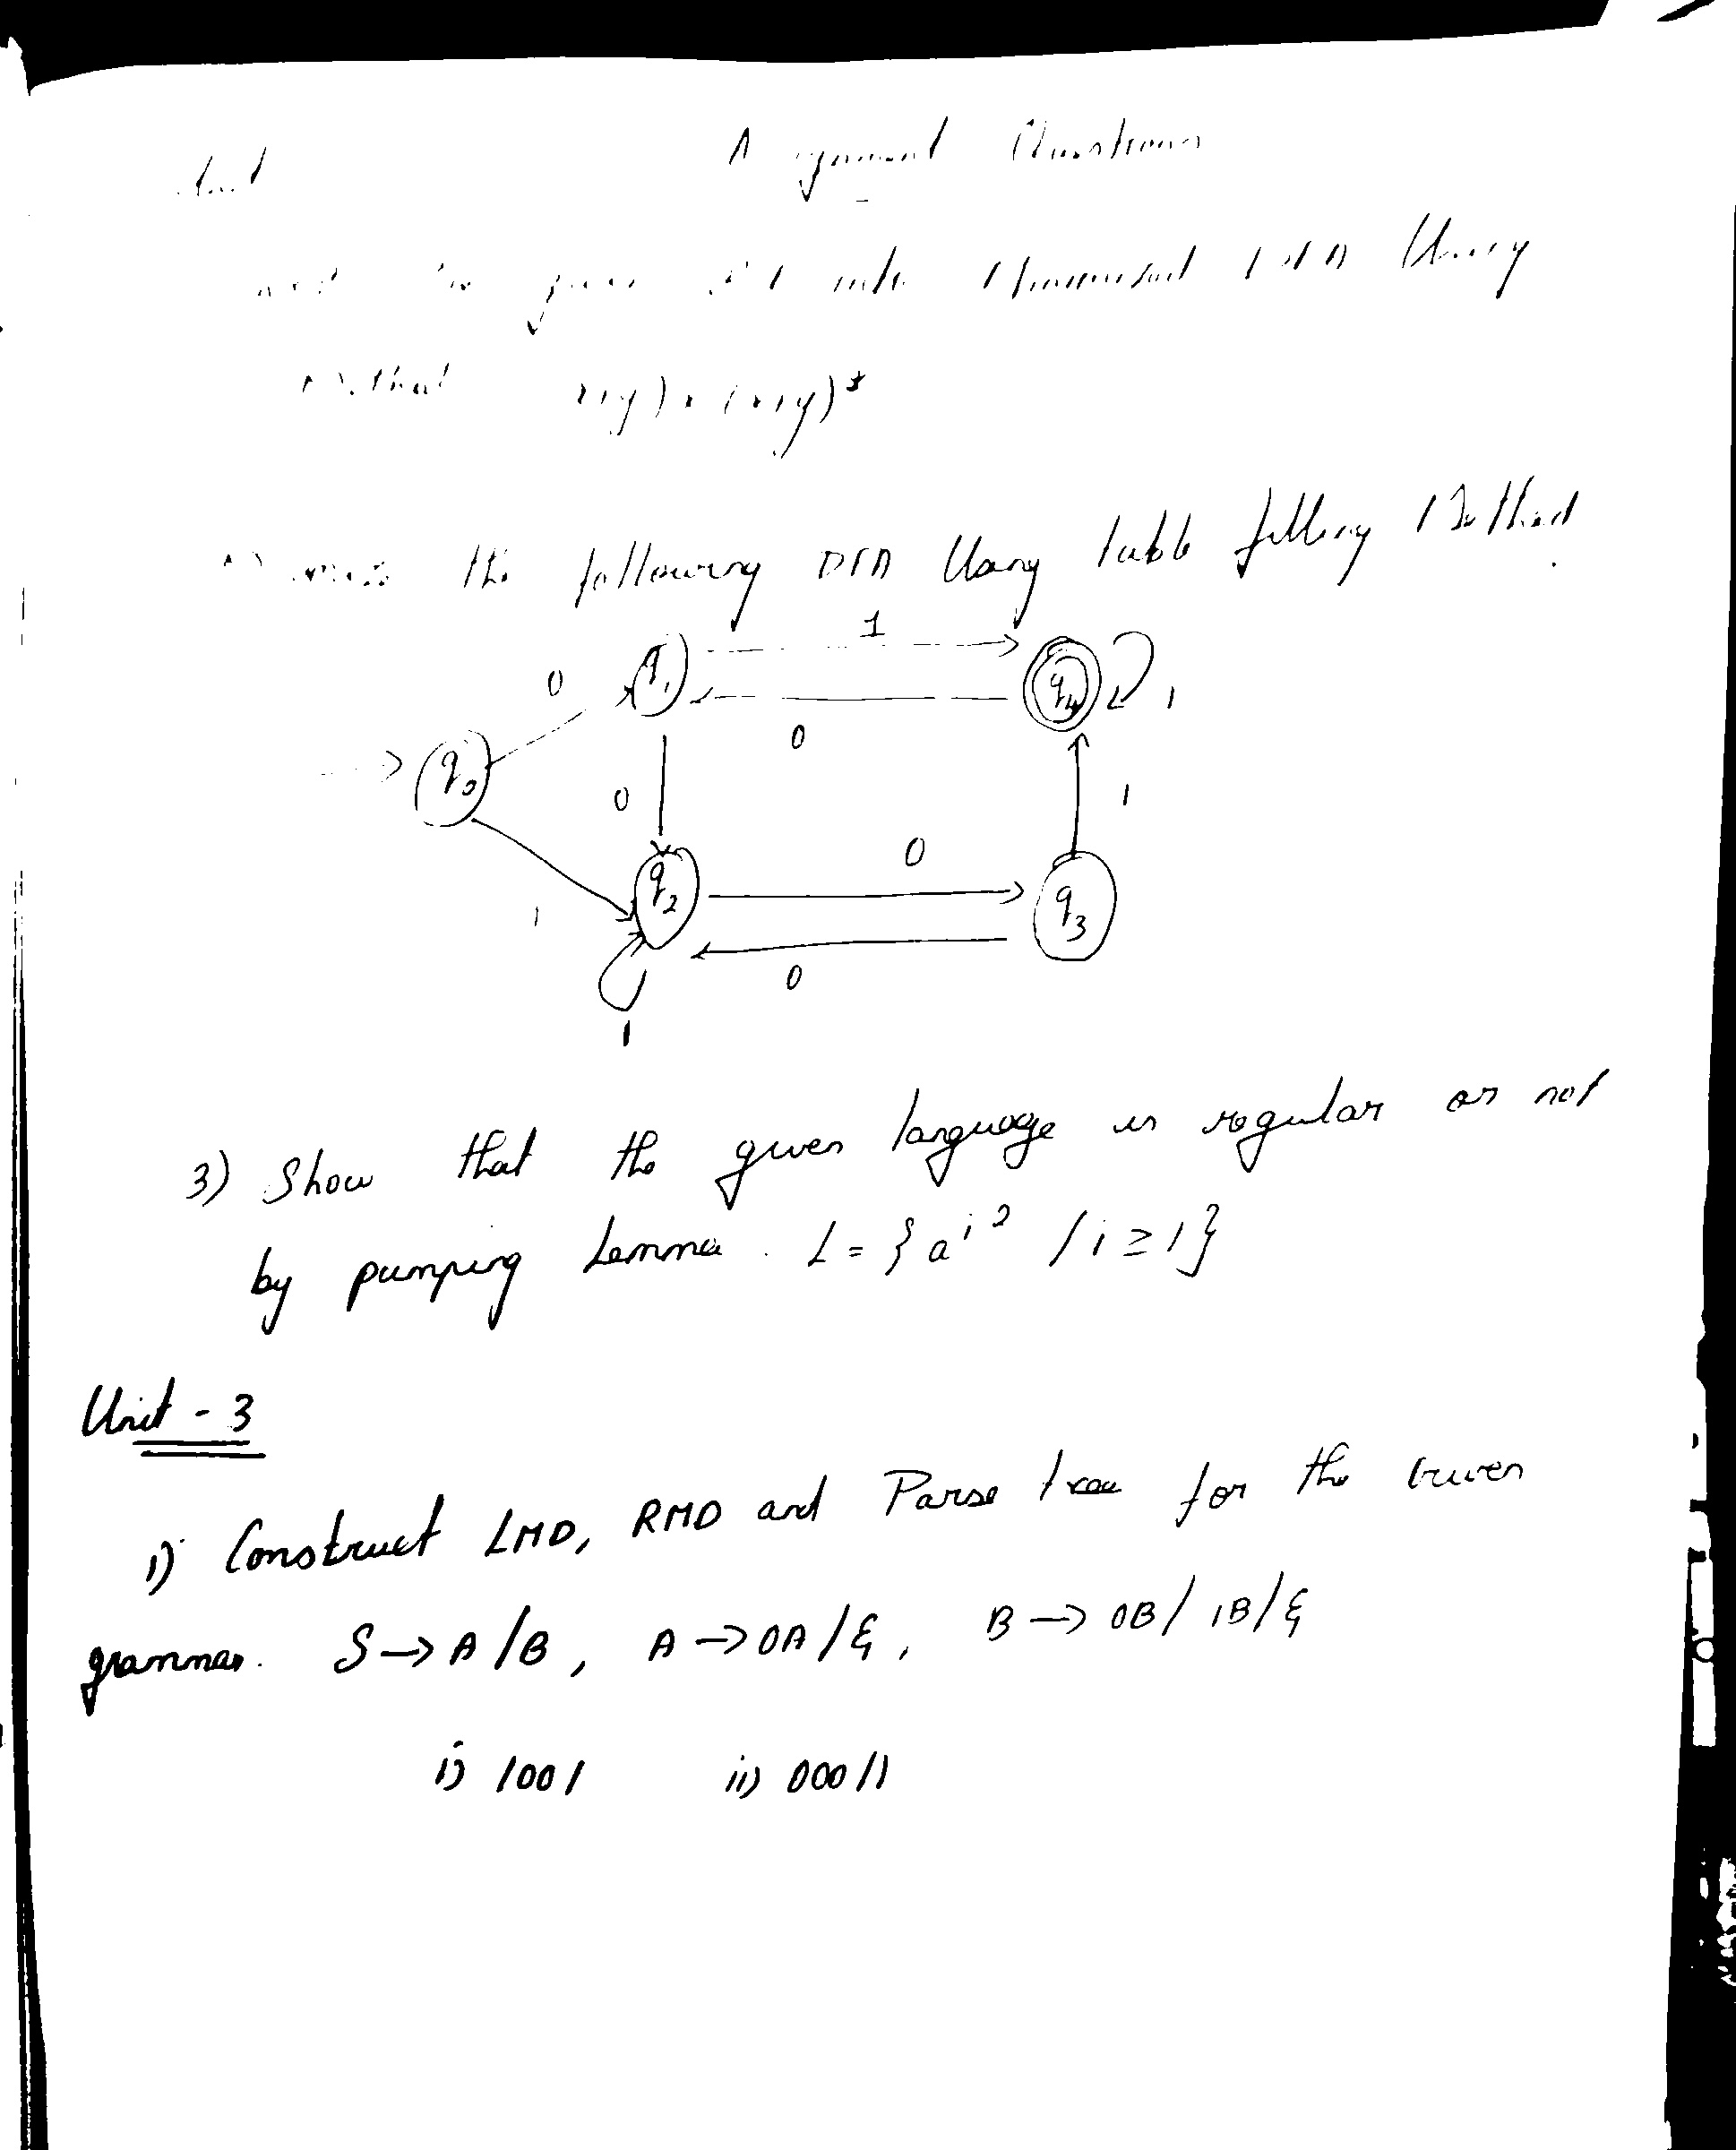 Questions
Using
x+y)x(x+y)*
the following DFA Using table filling Method
1
q1
q4
0
1
0
q0
0
1
0
q2
q3
1
0
1
3) Show that the given language is regular or not
by pumping Lemma. L = {a^i^2 / i ≥ 1}
Unit - 3
1) Construct LMD, RMD and Parse tree for the Given
grammar. S → A/B, A → 0A/ε, B → 0B/1B/ε
i) 1001 ii) 00011